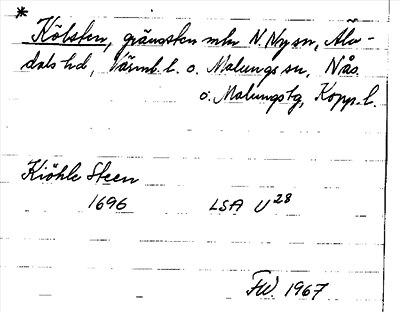 *
Kölsten, gränssten mln N Ny sn, Älv-
dals hd, Värml. l. o. Malungs sn, Nås
o. Malungs tg, Kopp. l.
Kiöhle Steen
1696 LSA U 28
FW. 1967